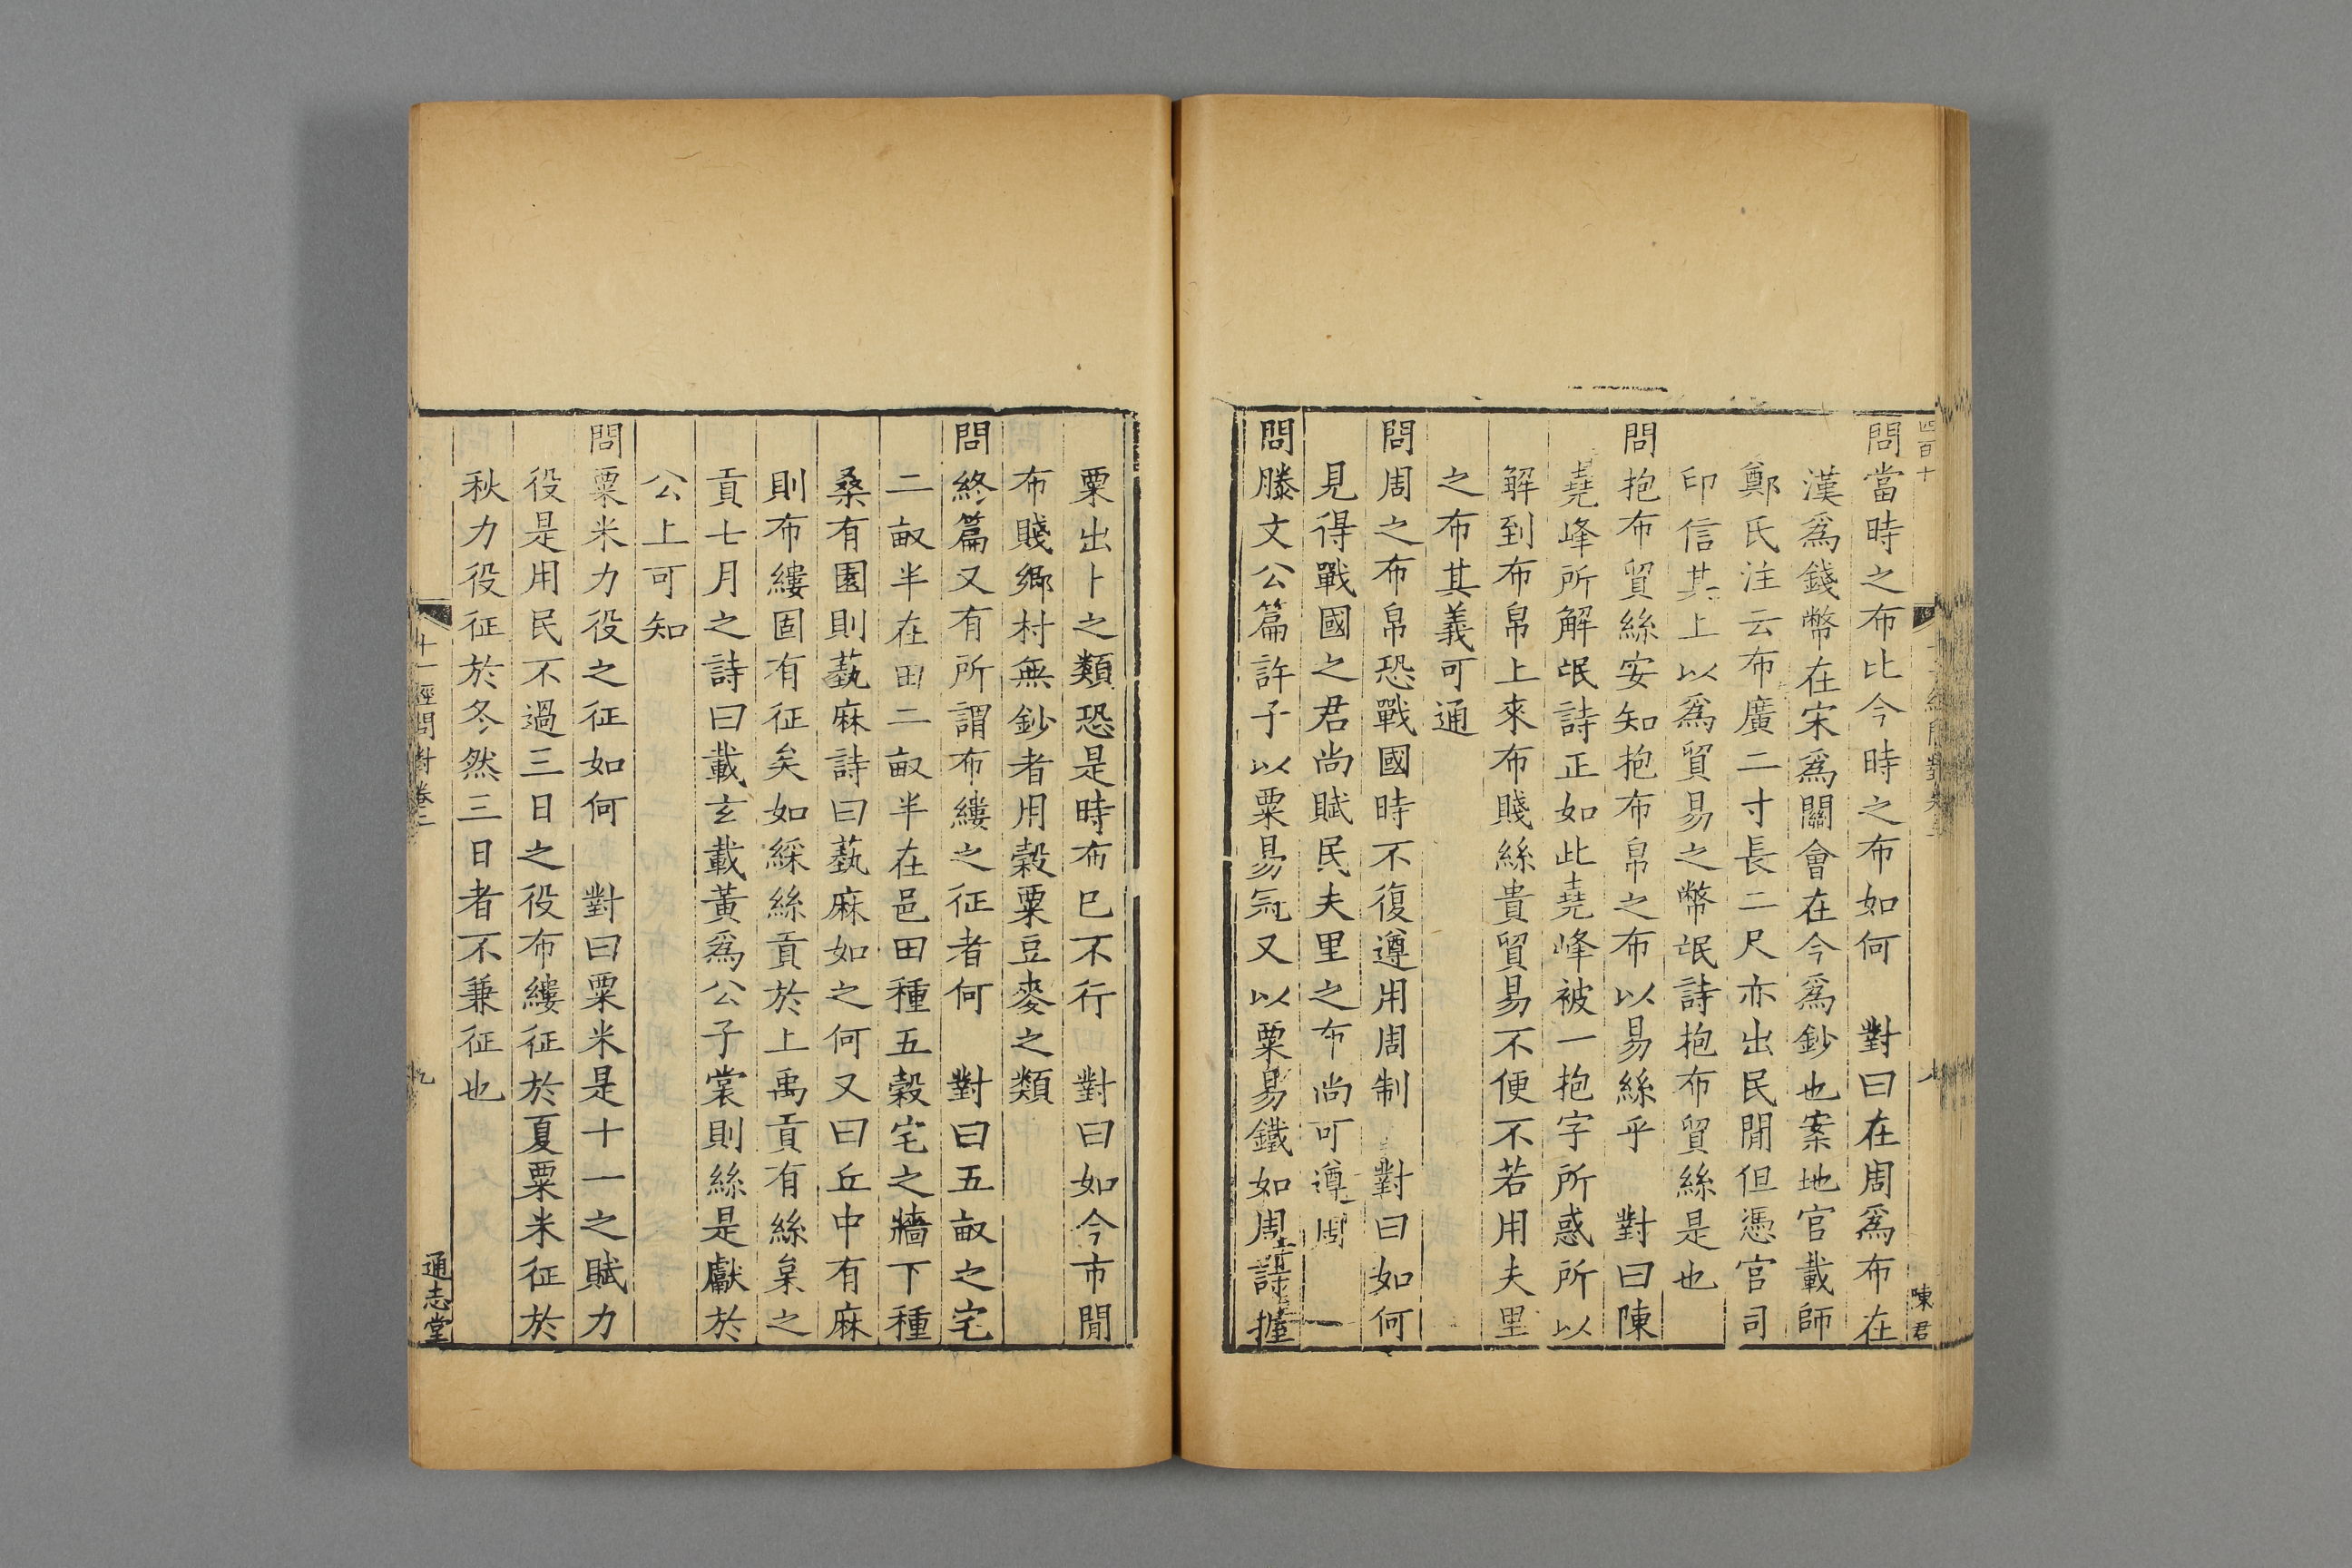 四百十
陳君
問當時之布比今時之布如何　對曰在周爲布在
漢爲錢幣在宋爲關會在今爲鈔也案地官載師
鄭氏注云布廣二寸長二尺亦出民閒但憑官司
印信其上以爲貿易之幣氓詩抱布貿絲是也
問抱布貿絲安知抱布帛之布以易絲乎　對曰陳
堯峰所解氓詩正如此堯峰被一抱字所惑所以
解到布帛上來布賤絲貴貿易不便不若用夫里
之布其義可通
問周之布帛恐戰國時不復遵用周制　對曰如何
見得戰國之君尚賦民夫里之布尚可遵周一
問滕文公篇許子以粟易冠又以粟易鐵如周詩握
粟出卜之類恐是時布已不行　對曰如今市閒
布賤鄉村無鈔者用穀粟豆麥之類
問終篇又有所謂布縷之征者何　對曰五畝之宅
二畝半在田二畝半在邑田種五穀宅之牆下種
桑有園則蓺麻詩曰蓺麻如之何又曰丘中有麻
則布縷固有征矣如綵絲貢於上禹貢有絲枲之
貢七月之詩曰載玄載黃爲公子裳則絲是獻於
公上可知
問粟米力役之征如何　對曰粟米是十一之賦力
役是用民不過三日之役布縷征於夏粟米征於
秋力役征於冬然三日者不兼征也
十一經問對卷二
九
通志堂